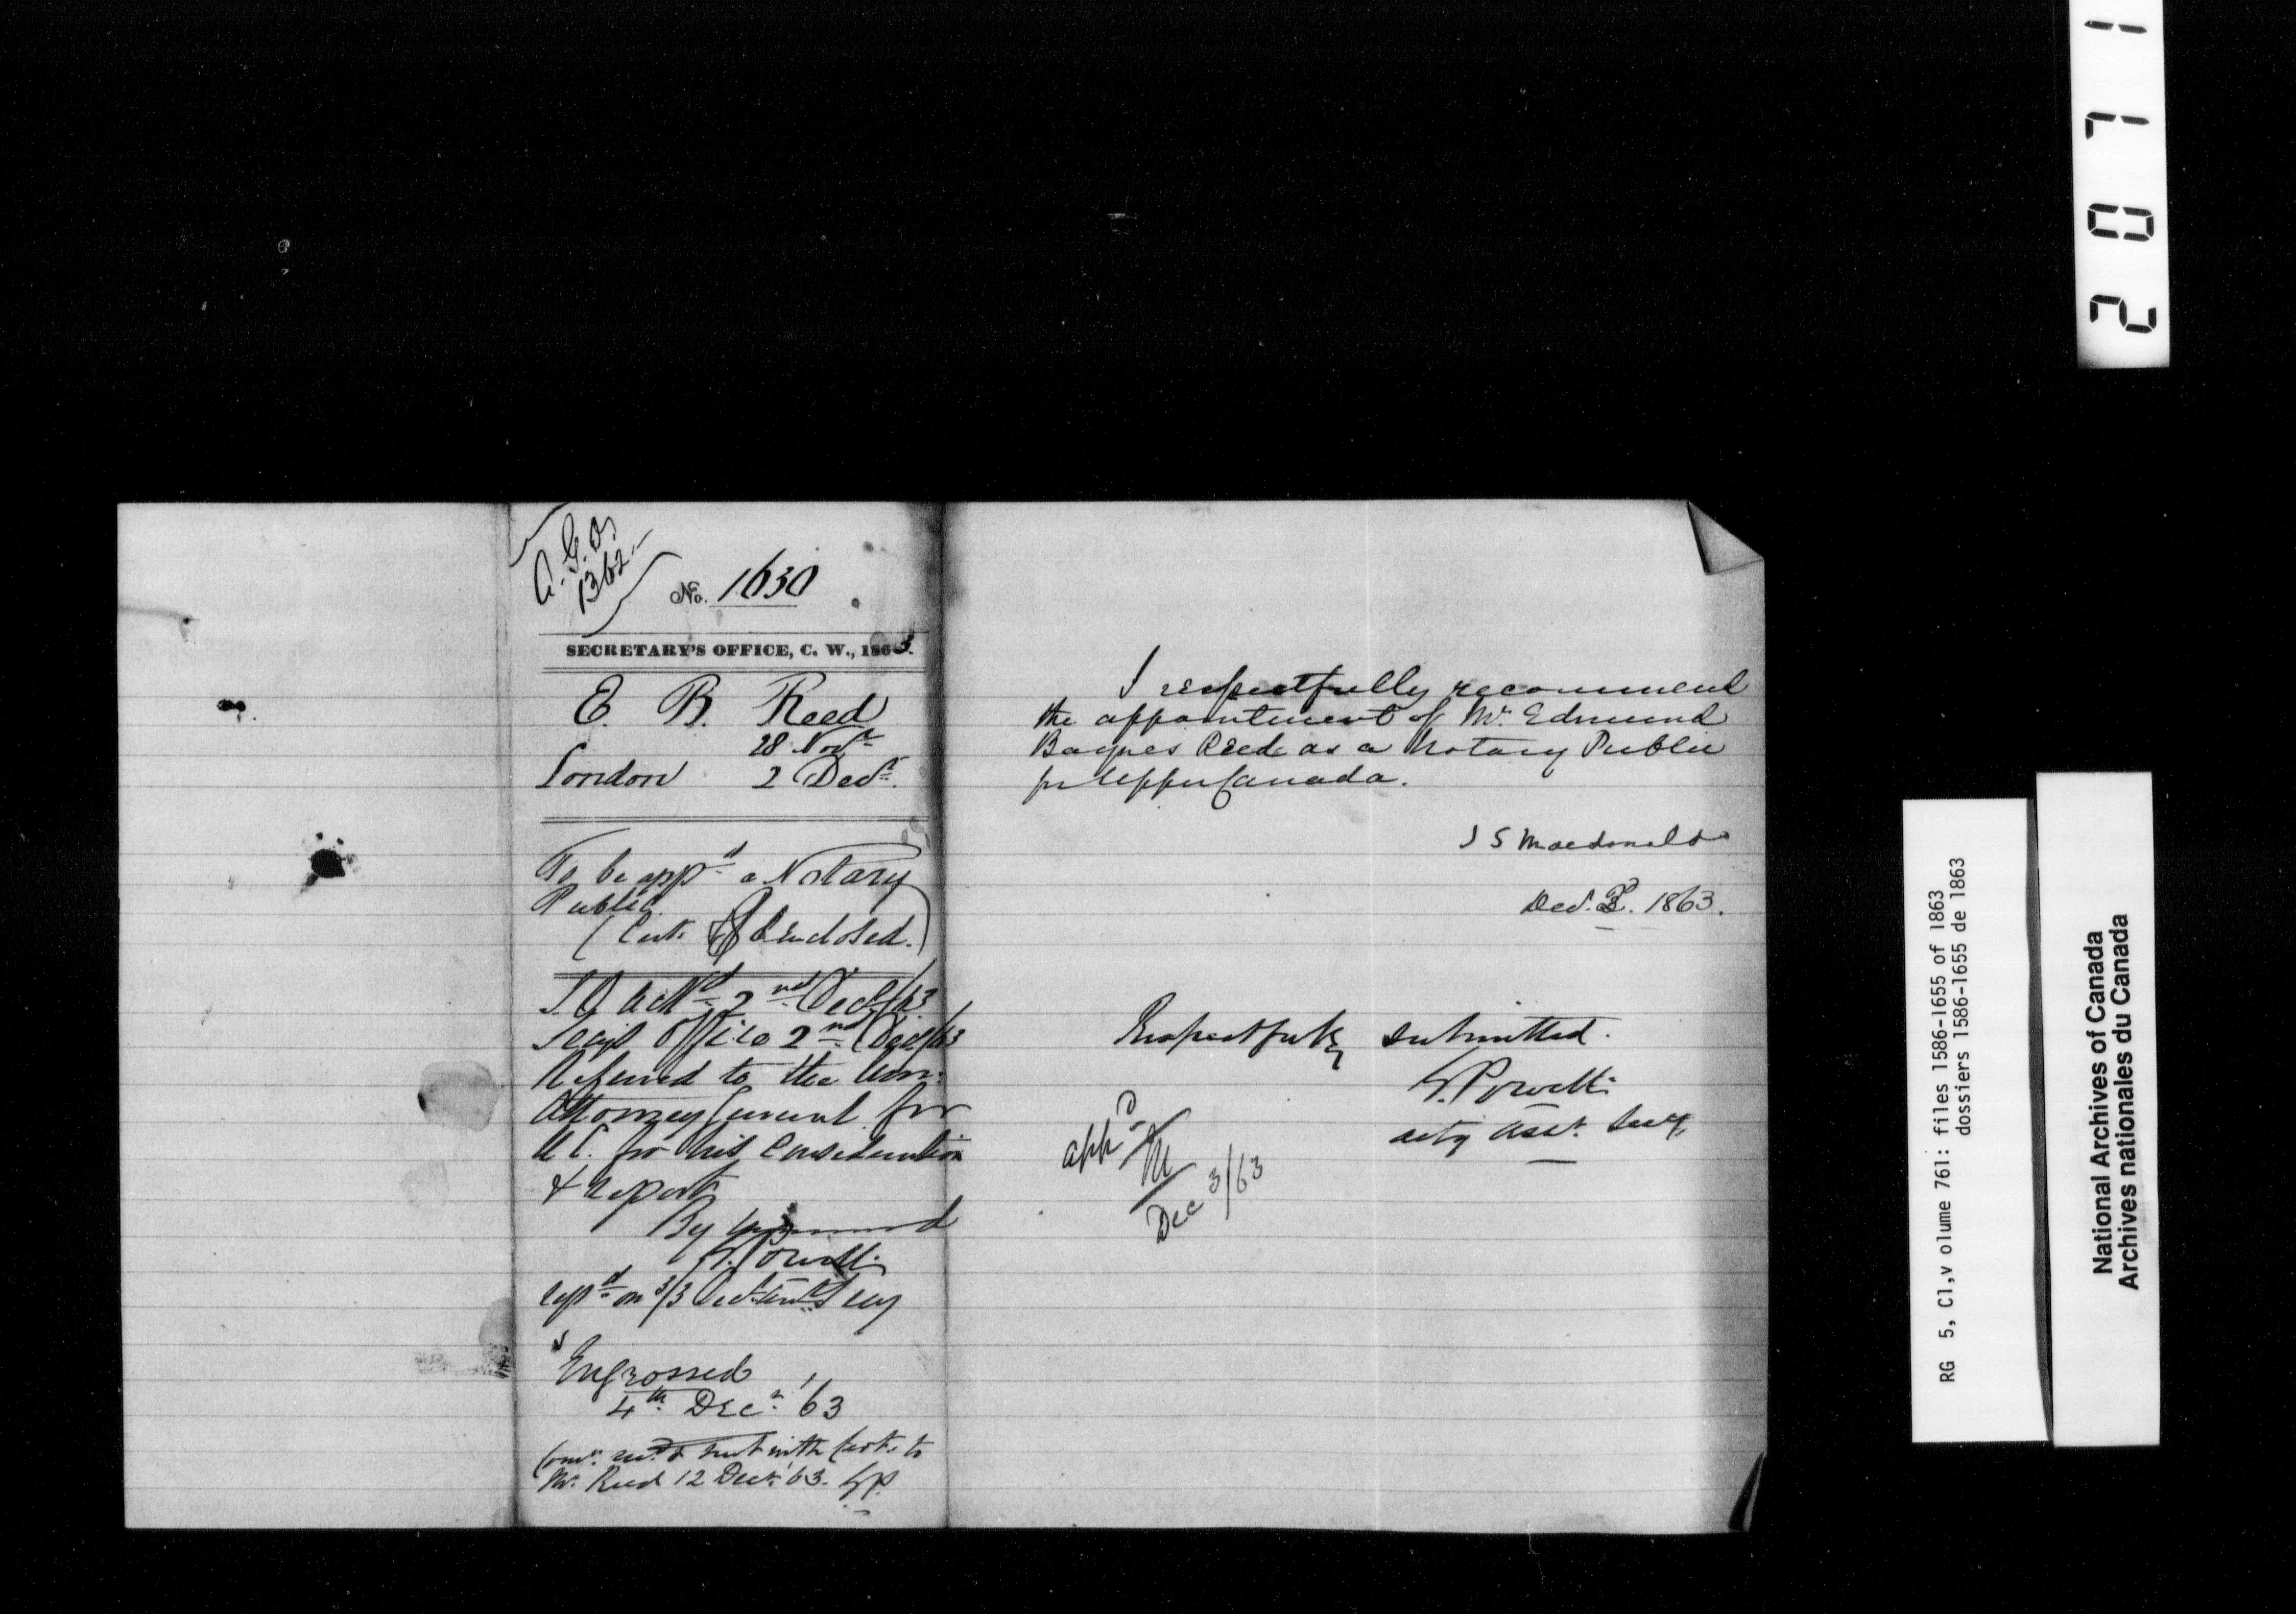 A. G. O.
1362
No. 1630
SECRETARY'S OFFICE, C. W., 1863.
E. B. Reed
28 Novr
London 2 Decr.
To be appd a Notary
Public.
(Cert. Enclosed.)
2nd Decr/63
Secys Office 2nd Decr/63
Referred to the Hon:
Attorney General for
U C. for his Consideration
& report
By Command
G. Powell
Engrossed
4th Decr '63
sent with Cert. to
Mr. Reed 12 Decr. '63. GP.
I respectfully recommend
the appointment of Mr. Edmund
Baynes Reed as a Notary Public
for Upper Canada.
J S Macdonald
Decr. 3. 1863.
Respectfully submitted.
G. Powell
actg Asst. Secy.
appd
M
Dec 3/63
2071
RG 5, C1,v olume 761: files 1586-1655 of 1863
dossiers 1586-1655 de 1863
National Archives of Canada
Archives nationales du Canada